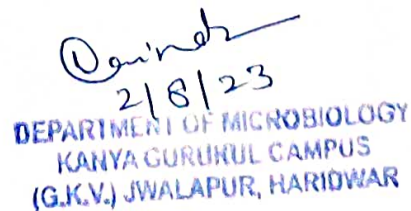 2/8/23
DEPARTMENT OF MICROBIOLOGY
KANYA GURUKUL CAMPUS
(G.K.V.) JWALAPUR, HARIDWAR